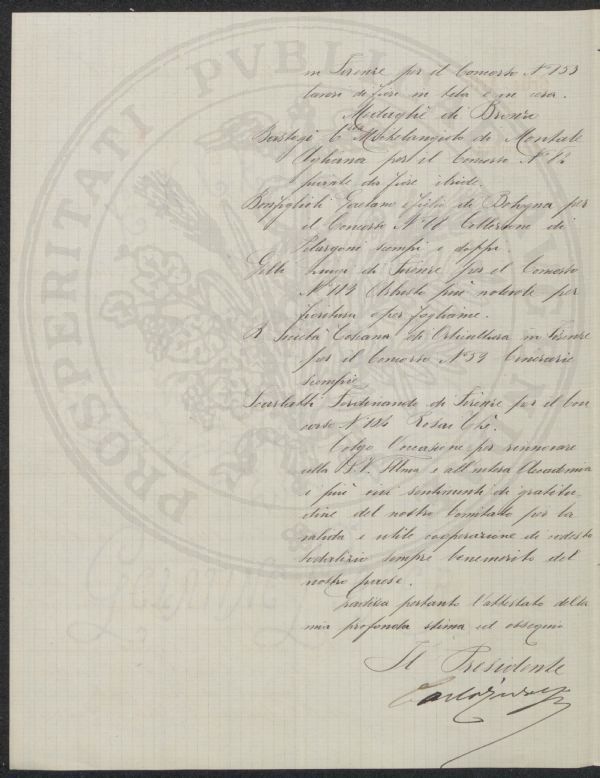 in Firenze per il Concorso N° 153
lavori di fiori in tela e in cera.
Medaglie di Bronzo
Michelangelo di Montale
Agliana per il Concorso N° 12
piante da fiore ibride.
Bonfiglioli Gaetano e figlio di Bologna per
il Concorso N° 18 Collezione di
Pelargoni scempi e doppi.
Luigi di Firenze per il Concorso
N° 184 Arbusto più notevole per
fioritura o per fogliame.
R. Società Toscana di Orticultura in Firenze
per il Concorso N° 59 Cinerarie
scempie
Scarlatti Ferdinando di Firenze per il Con
corso N° 186 Rosai Thé.
Colgo l'occasione per rinnovare
alla S.V. Illma e all'intera Accademia
i più vivi sentimenti di gratitu
dine del nostro Comitato per la
valida e utile cooperazione di codesto
sodalizio sempre benemerito del
nostro paese.
Gradisca pertanto l'attestato della
mia profonda stima ed ossequio
Il Presidente
PROSPERITATI PVBLICAE